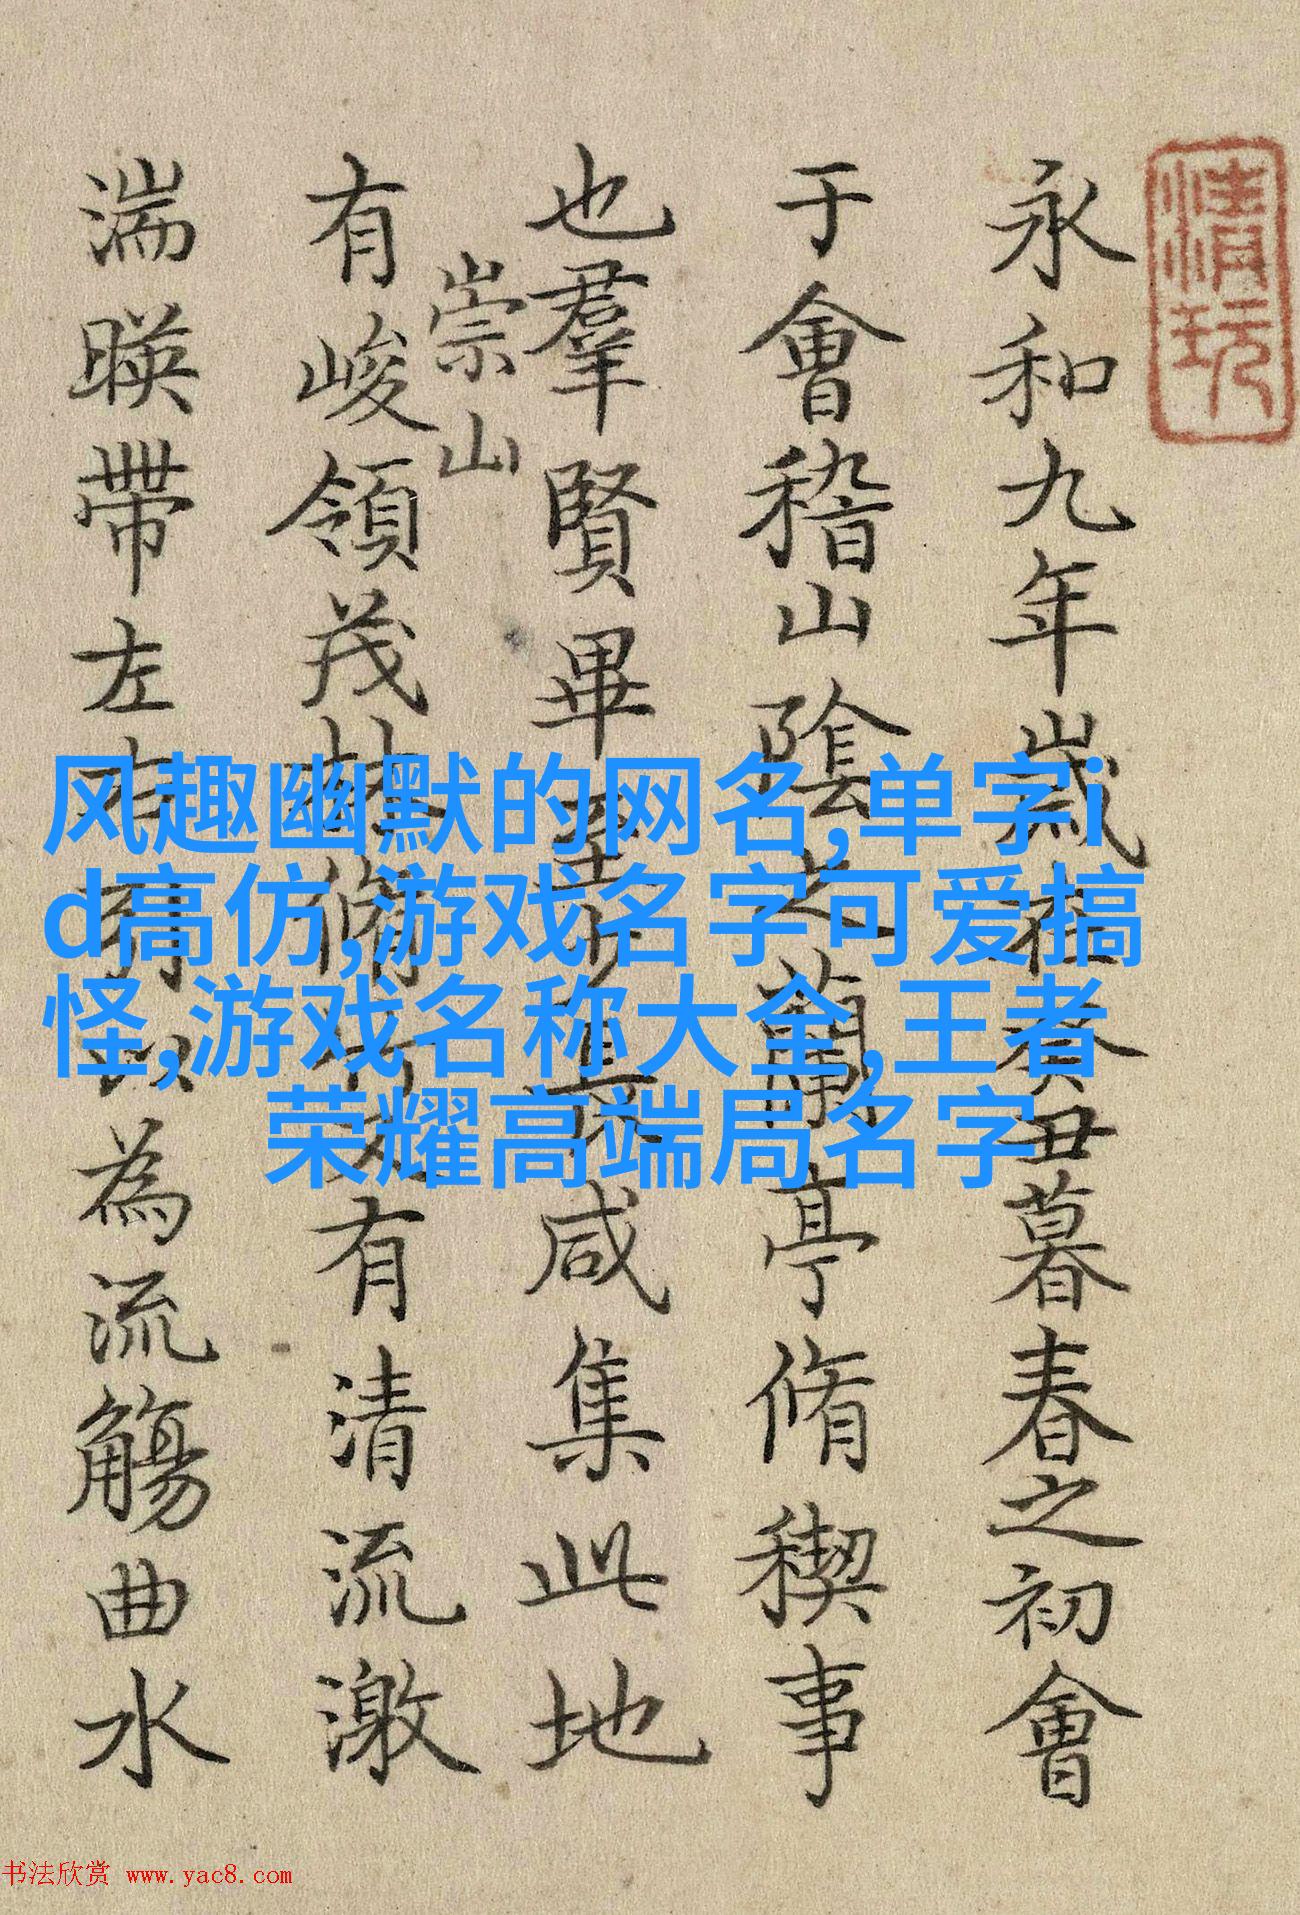 清玩
永和九年歲在癸丑暮春之初會
于會稽山陰之蘭亭脩稧事
也羣賢畢至少長咸集此地
崇山
有峻領茂林脩竹又有清流激
湍暎帶左右引以為流觴曲水
风趣幽默的网名,单字i
d高仿,游戏名字可爱搞
怪,游戏名称大全,王者
荣耀高端局名字
书法欣赏 www.yac8.com